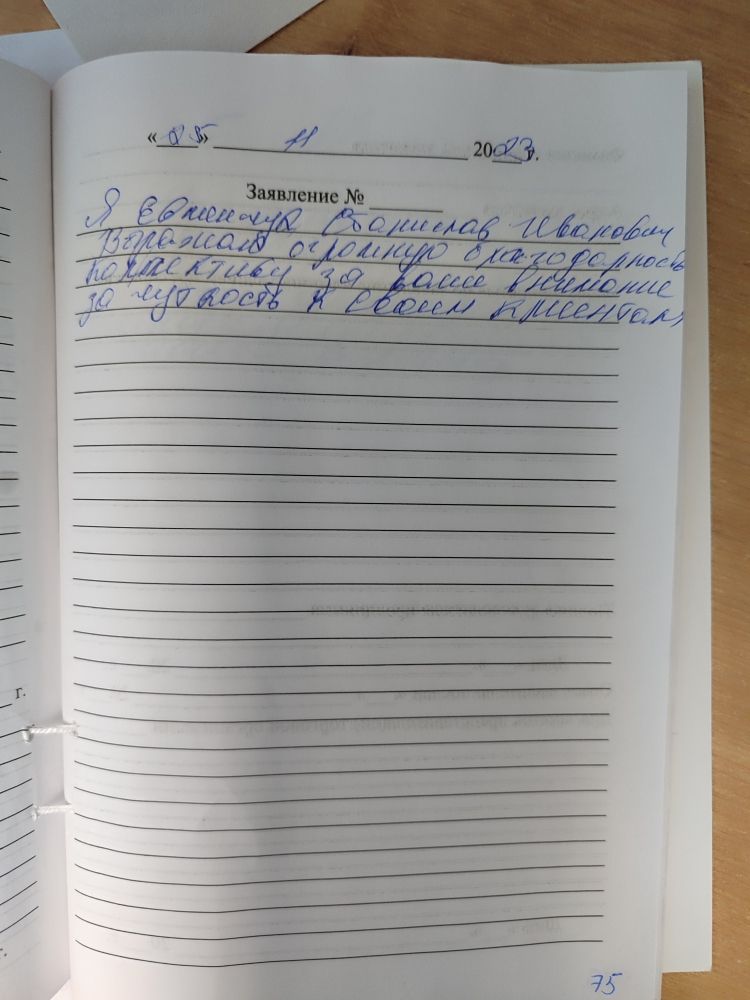 «25» 11 2023г.
Заявление №
Я Станислав Иванович
Выражаю огромную благодарность
коллективу за ваше внимание
за чуткость к своим клиентам
г.
75